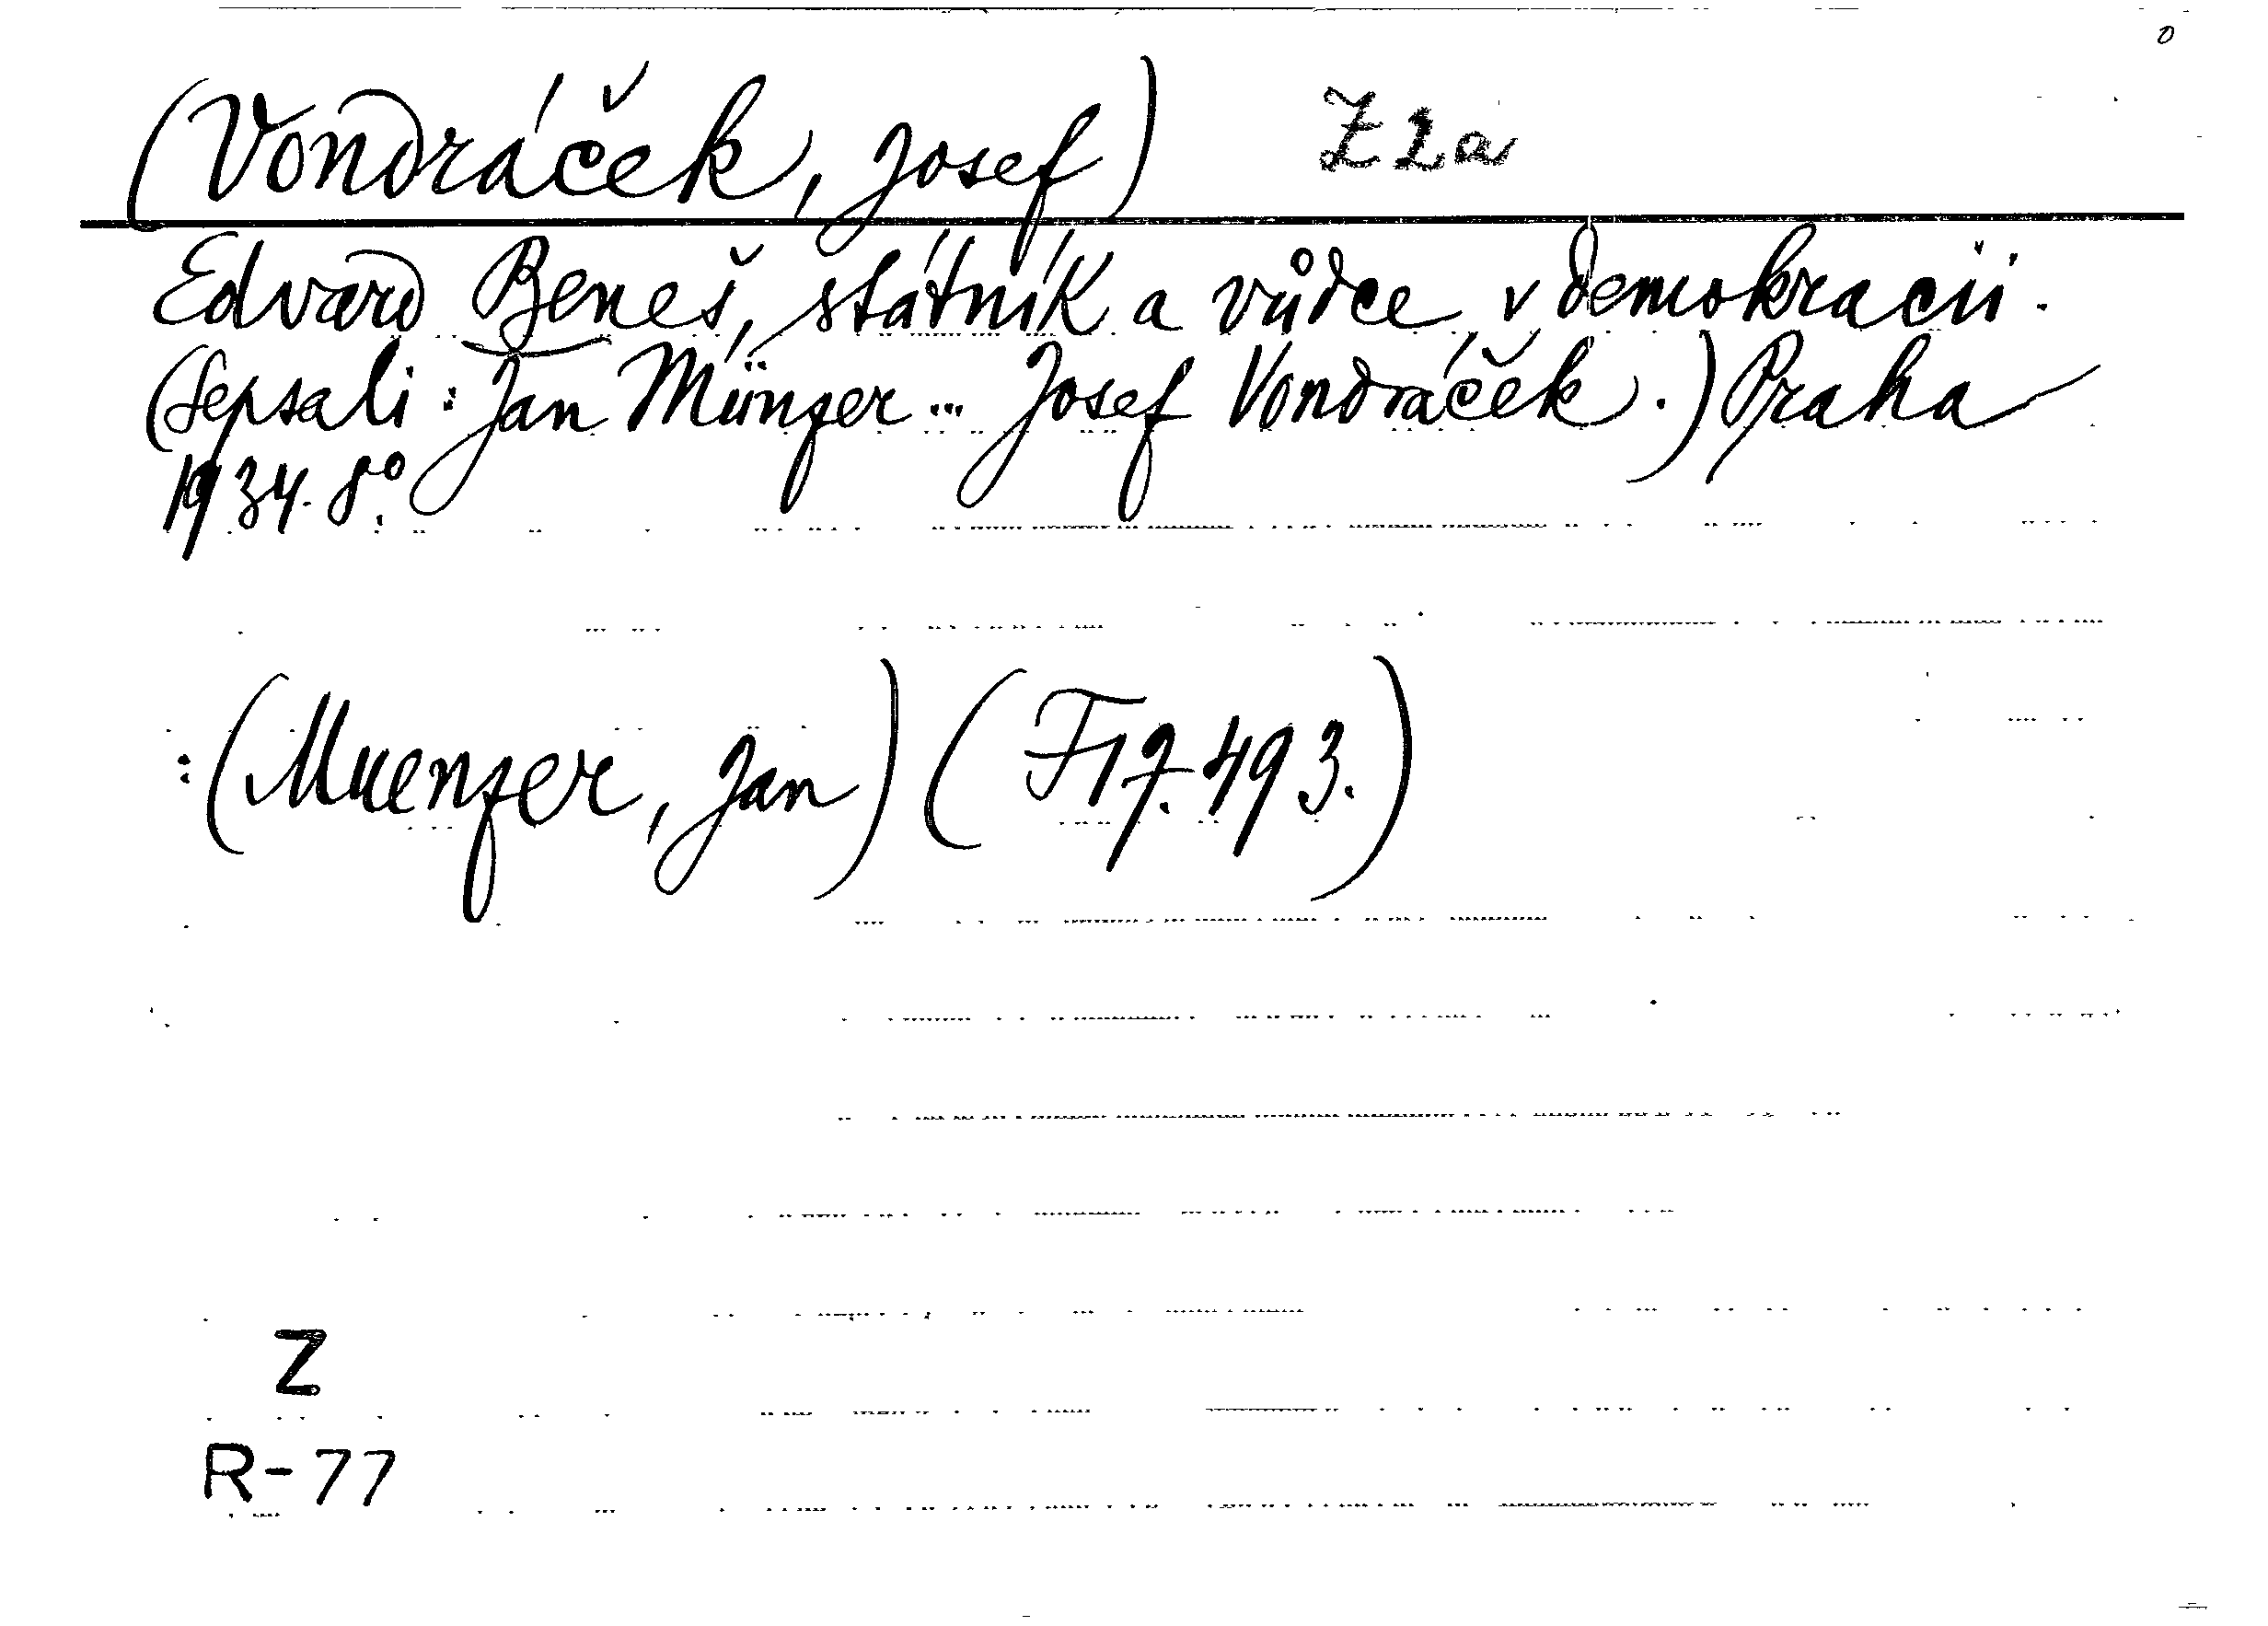 (Vondráček, Josef) Z 2a
Edvard Beneš, státník a vůdce v demokracii.
(Sepsali: Jan Münzer... Josef Vondráček.) Praha
1934. 8°.
:(Muenzer, Jan) (F 17.493.)
Z
R-77